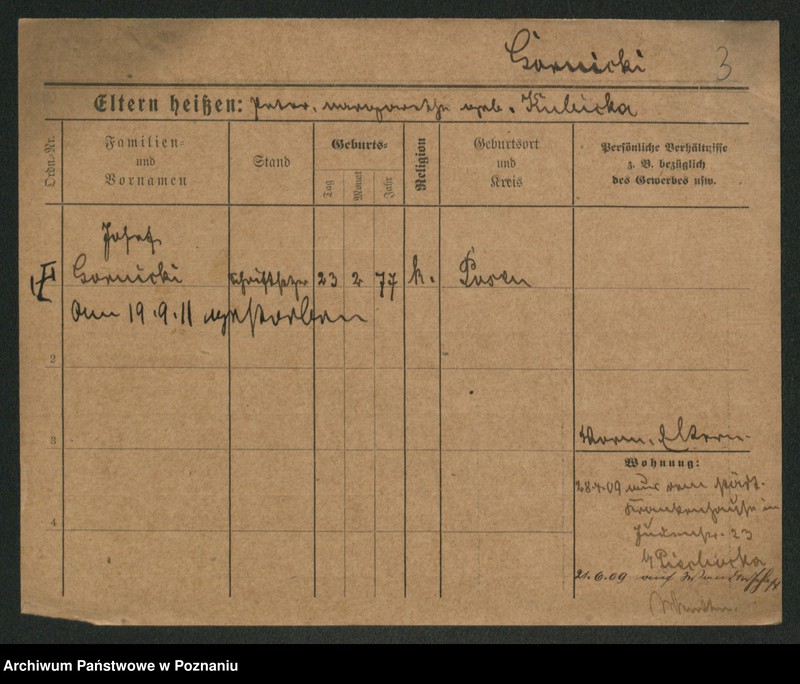 Górnicki 3
Eltern heißen: Peter, Margarethe geb. Kubicka
Ordn.-Nr.
Familien- und Vornamen
Stand
Geburts-
Tag
Monat
Jahr
Religion
Geburtsort und Kreis
Persönliche Verhältnisse z. B. bezüglich des Gewerbes usw.
Josef
Gornicki Schriftsetzer 23 2 77 k. Posen
Am 19.9.11 gestorben
2
3
4
Eltern.
Wohnung:
28.4.09 aus dem städt.
Krankenhause in
Judenstr. 23
21.6.09 auf Wanderschaft
Archiwum Państwowe w Poznaniu